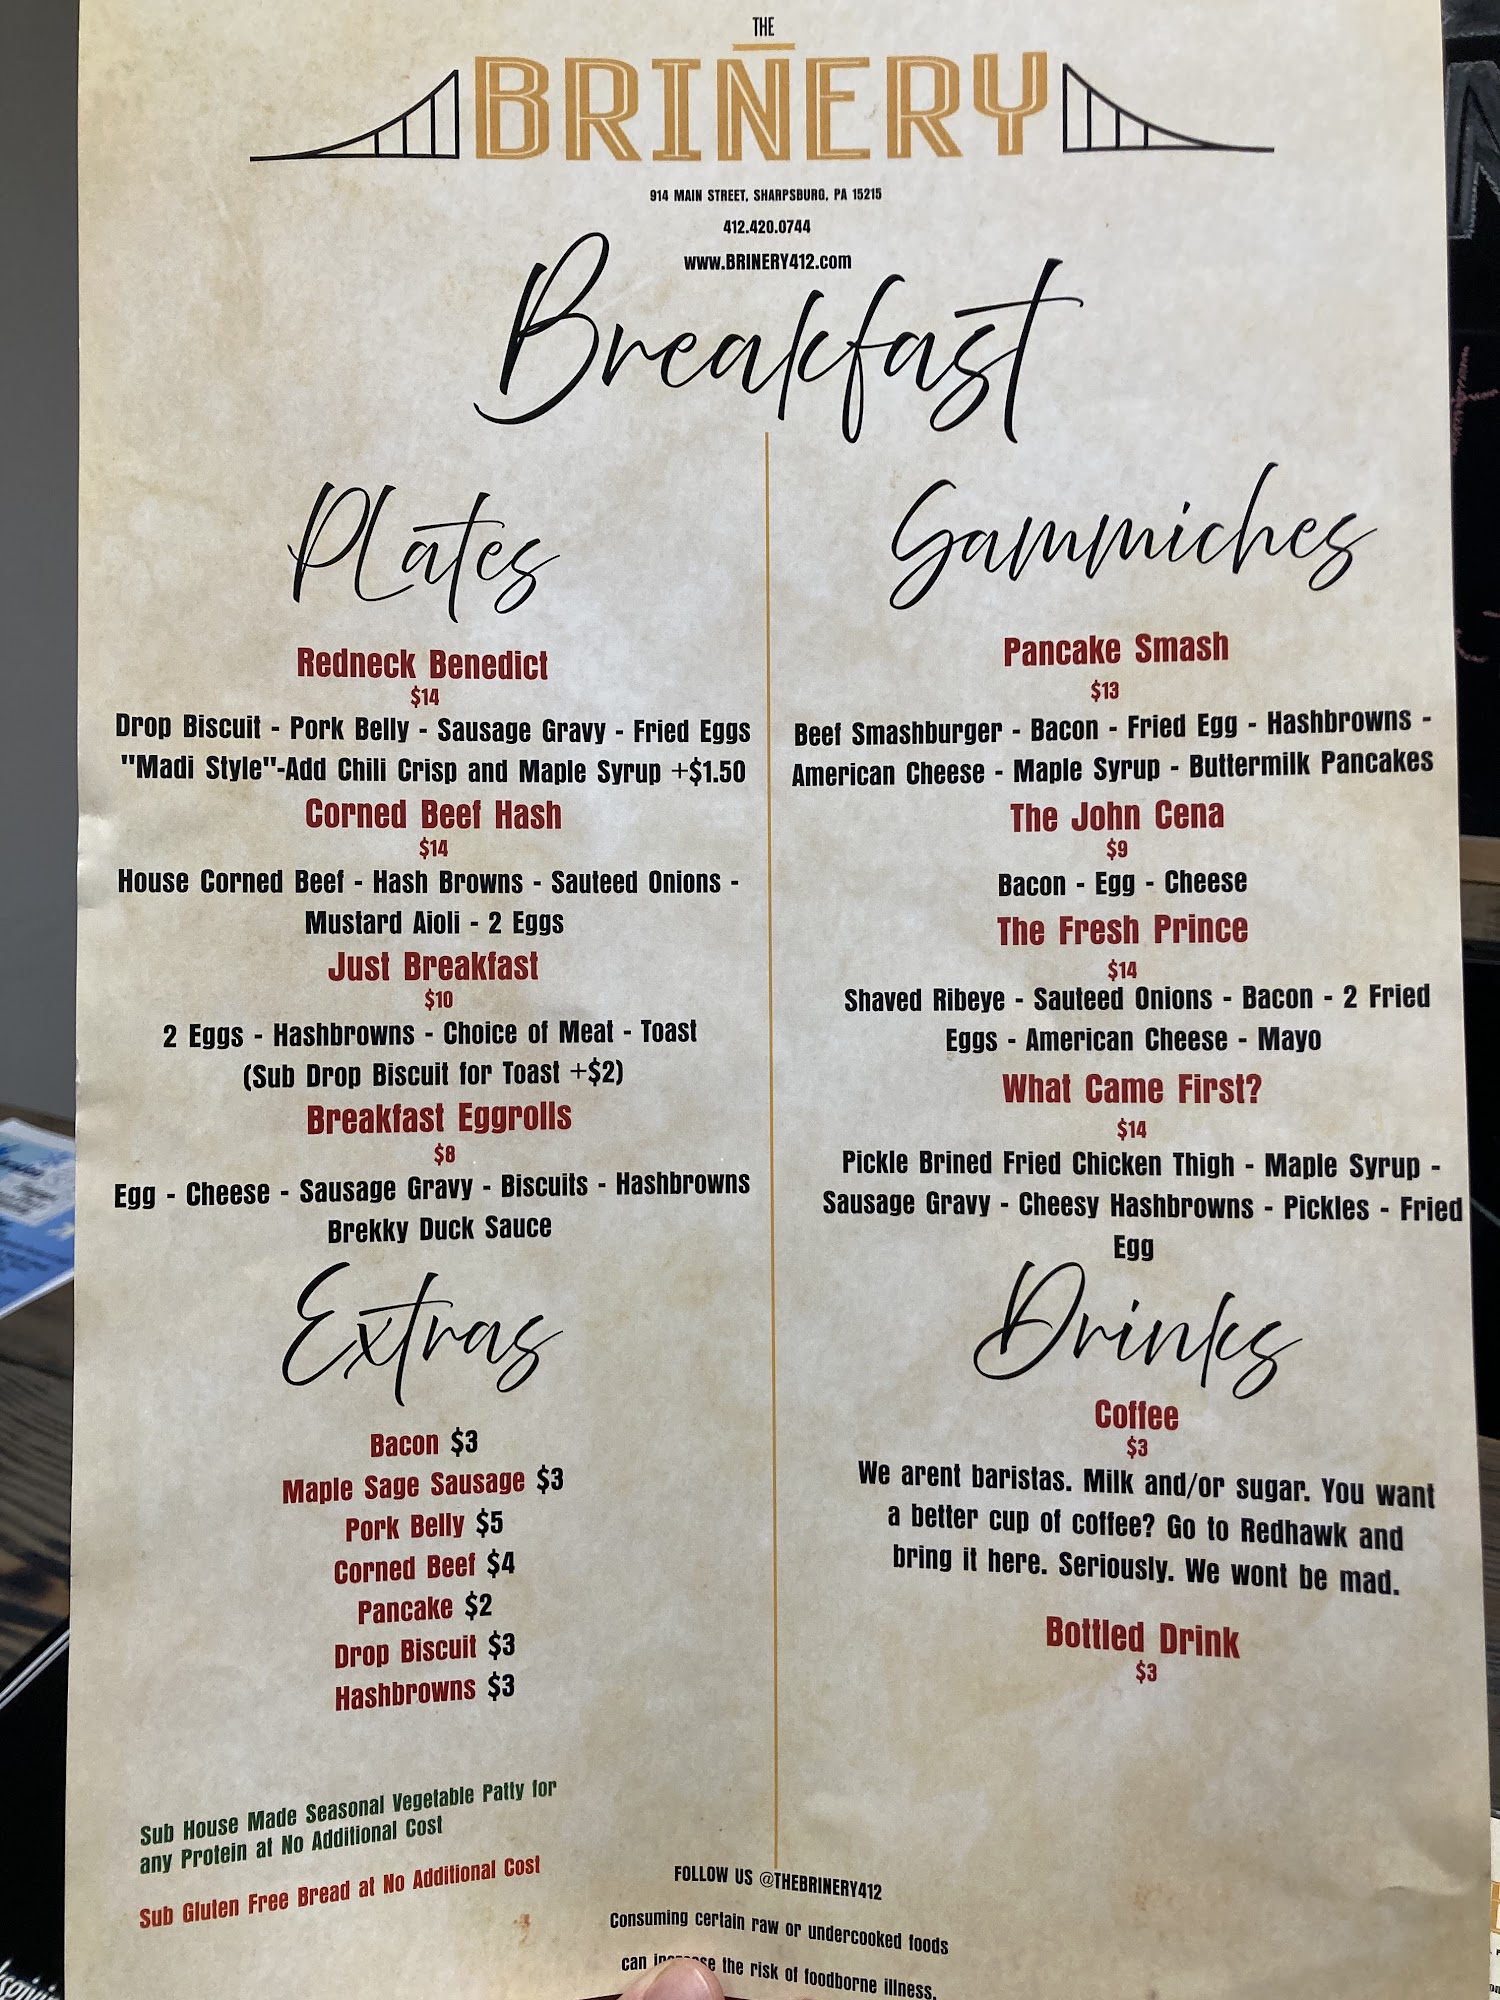 THE
BRINERY
914 MAIN STREET, SHARPSBURG, PA 15215
412.420.0744
www.BRINERY412.com
Breakfast
Plates
Redneck Benedict
$14
Drop Biscuit - Pork Belly - Sausage Gravy - Fried Eggs
"Madi Style"-Add Chili Crisp and Maple Syrup +$1.50
Corned Beef Hash
$14
House Corned Beef - Hash Browns - Sauteed Onions -
Mustard Aioli - 2 Eggs
Just Breakfast
$10
2 Eggs - Hashbrowns - Choice of Meat - Toast
(Sub Drop Biscuit for Toast +$2)
Breakfast Eggrolls
$8
Egg - Cheese - Sausage Gravy - Biscuits - Hashbrowns
Brekky Duck Sauce
Extras
Bacon $3
Maple Sage Sausage $3
Pork Belly $5
Corned Beef $4
Pancake $2
Drop Biscuit $3
Hashbrowns $3
Sub House Made Seasonal Vegetable Patty for
any Protein at No Additional Cost
Sub Gluten Free Bread at No Additional Cost
Sammiches
Pancake Smash
$13
Beef Smashburger - Bacon - Fried Egg - Hashbrowns -
American Cheese - Maple Syrup - Buttermilk Pancakes
The John Cena
$9
Bacon - Egg - Cheese
The Fresh Prince
$14
Shaved Ribeye - Sauteed Onions - Bacon - 2 Fried
Eggs - American Cheese - Mayo
What Came First?
$14
Pickle Brined Fried Chicken Thigh - Maple Syrup -
Sausage Gravy - Cheesy Hashbrowns - Pickles - Fried
Egg
Drinks
Coffee
$3
We arent baristas. Milk and/or sugar. You want
a better cup of coffee? Go to Redhawk and
bring it here. Seriously. We wont be mad.
Bottled Drink
$3
FOLLOW US @THEBRINERY412
Consuming certain raw or undercooked foods
can the risk of foodborne illness.